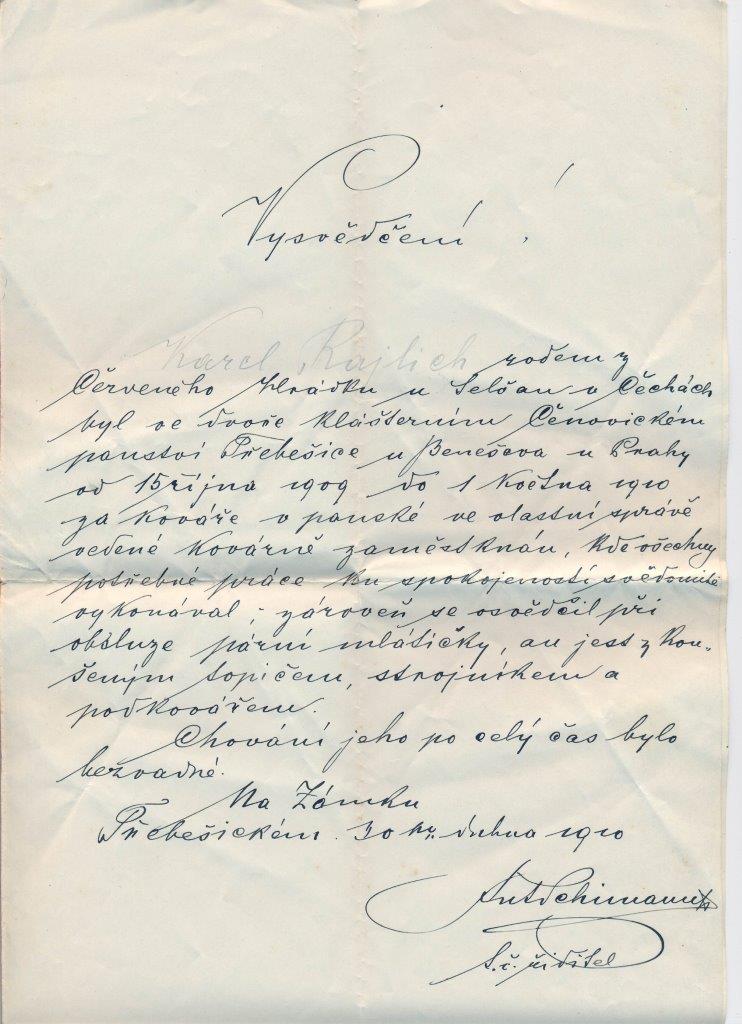 Vysvědčení !
Karel Rajlich rodem z
Červeného Hrádku u Selčan v Čechách
byl ve dvoře klášterním Čenovickém
panství Třebešice u Benešova u Prahy
od 15 října 1909 do 1 Května 1910
za Kováře v panské ve vlastní správě
vedené Kovárně zaměstknán, kde všechny
potřebné práce ku spokojeností svědomitě
vykonával, zároveň se osvědčil při
obsluze pární mlátičky, an jest zkou-
šeným topičem, strojníkem a
podkovářem.
Chování jeho po celý čas bylo
bezvadné.
Na Zámku
Třebešickém 30 dubna 1910
Ant Schimann
ředitel